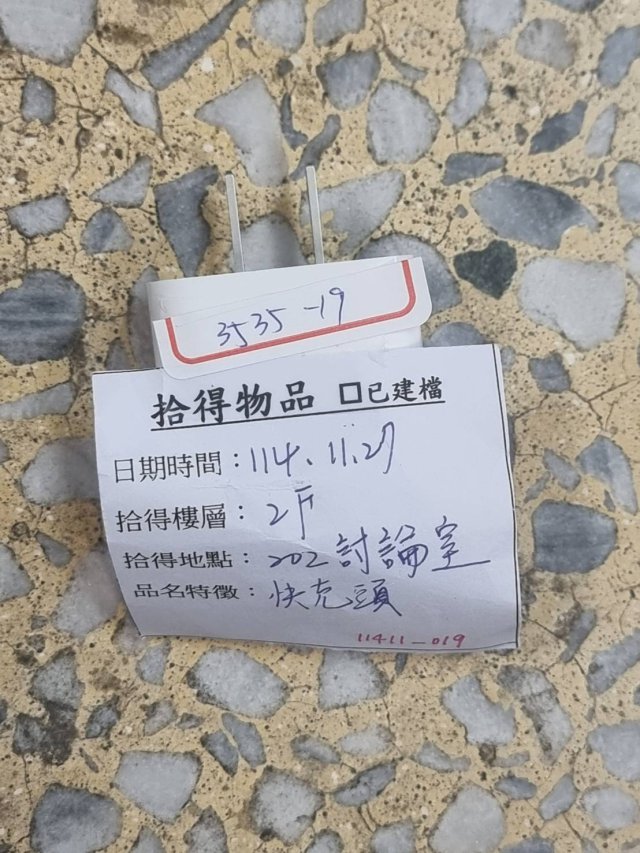 3535-19
拾得物品 □已建檔
日期時間：114.11.27
拾得樓層：2F
拾得地點：202討論室
品名特徵：快充頭
11411-019